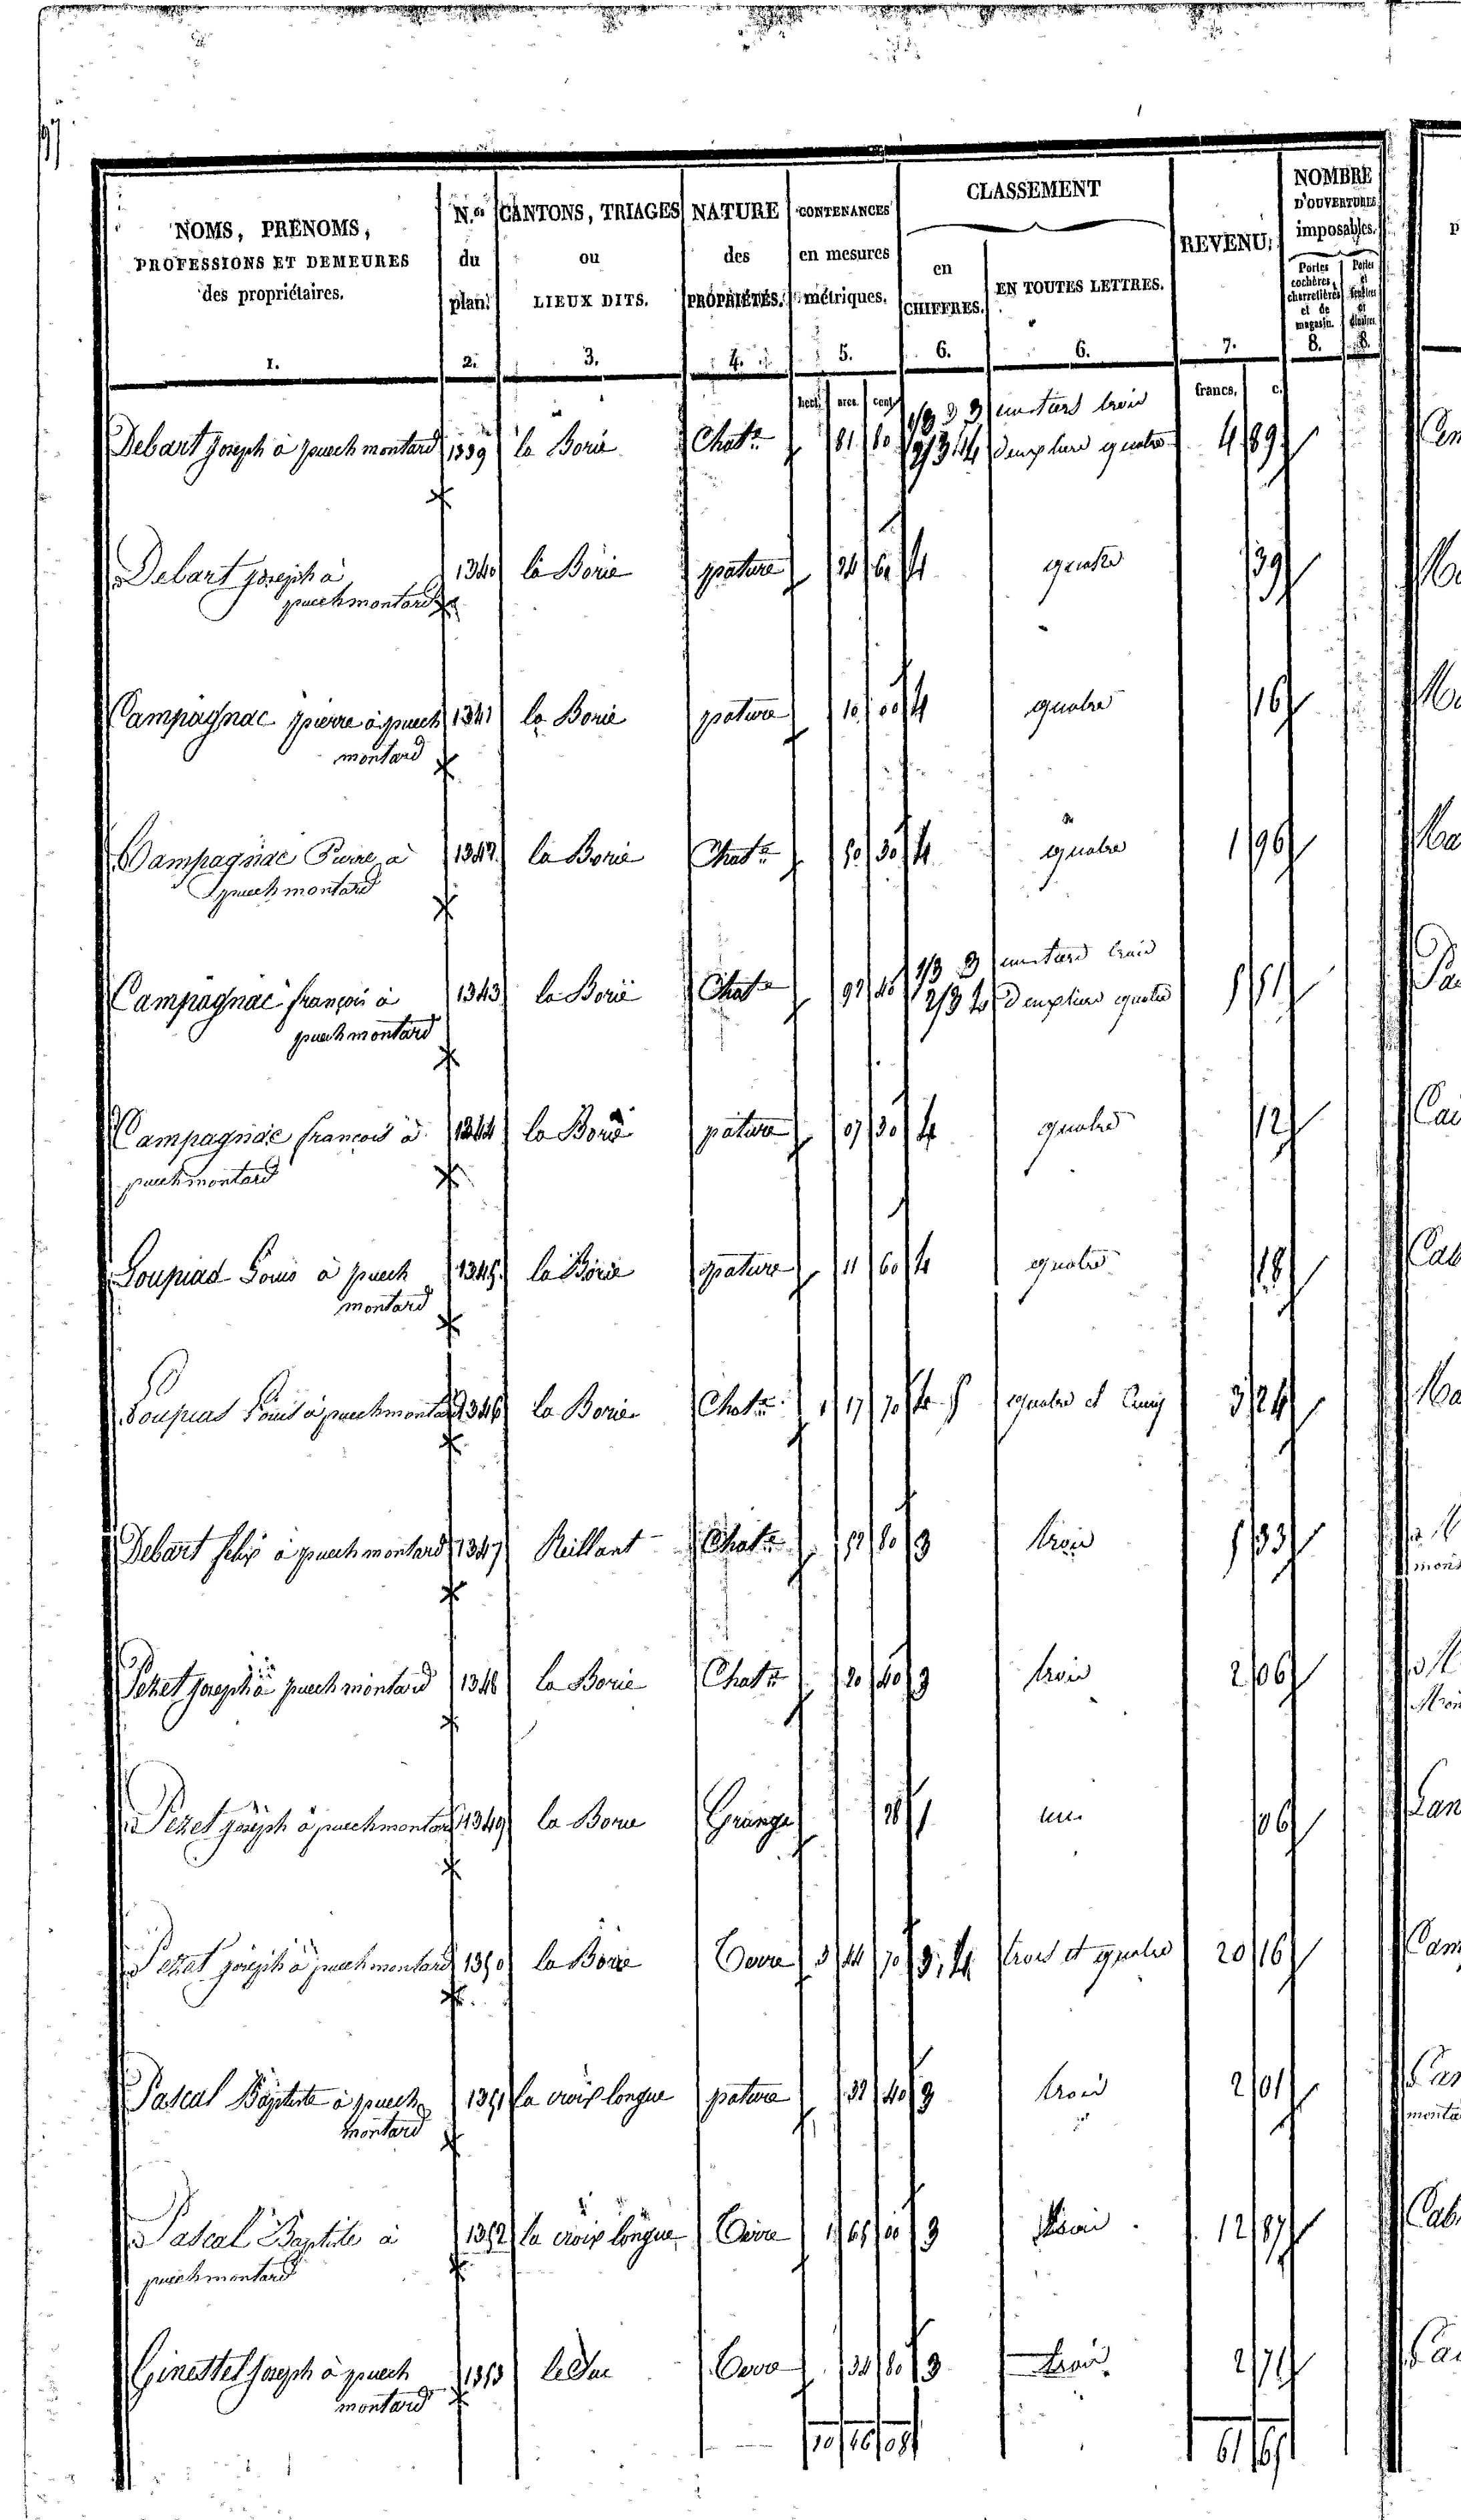 97
NOMS, PRÉNOMS,
PROFESSIONS ET DEMEURES
des propriétaires.
N.os
du
plan.
CANTONS, TRIAGES
ou
LIEUX DITS.
NATURE
des
PROPRIÉTÉS.
CONTENANCES
en mesures
métriques.
CLASSEMENT
en
CHIFFRES.
EN TOUTES LETTRES.
REVENU.
NOMBRE
D'OUVERTURES
imposables.
Portes
cochères,
charretières
et de
magasin.
1. 2. 3. 4. 5. 6. 6. 7. 8. 8.
hect. ares. cent. francs, c.
1/3 3 un tiers trois
Debart Joseph à puech montard 1339 la Borie Chat.re 81 80 2/3 4 quatre 4 89
Debart Joseph à 1340 la Borie pature 24 60 4 quatre 39
puechmontard
Campagnac pierre à puech 1341 la Borie pature 10 00 4 quatre 16
montard
Campagnac Pierre à 1342 la Borie Chat.re 50 30 4 quatre 1 96
puech montard
1/3 3 un tiers trois
Campagnac françois à 1343 la Borie Chat.re 92 40 2/3 4 quatre 5 51
puech montard
Campagnac françois à 1344 la Borie pature 07 30 4 quatre 12
puechmontard
Loupiad Louis à puech 1345 la Borie pature 11 60 4 quatre 18
montard
Loupiad Louis à puechmontard 1346 la Borie Chat.re 1 17 70 4 5 quatre et Cinq 3 24
Debart felix à puech montard 1347 Reillant Chat.re 52 80 3 trois 5 33
Pezet Joseph à puech montard 1348 la Borie Chat.re 20 40 3 trois 2 06
Pezet Joseph à puechmontard 1349 la Borie Grange 28 1 un 06
Pezet Joseph à puechmontard 1350 la Borie Terre 3 44 70 3, 4 trois et quatre 20 16
Pascal Baptiste à puech 1351 la croix longue pature 32 40 3 trois 2 01
montard
Pascal Baptiste à 1352 la croix longue Terre 1 65 00 3 trois 12 87
puechmontard
Ginestel Joseph à puech 1353 Terre 34 80 3 trois 2 71
montard
10 26 08
61 65